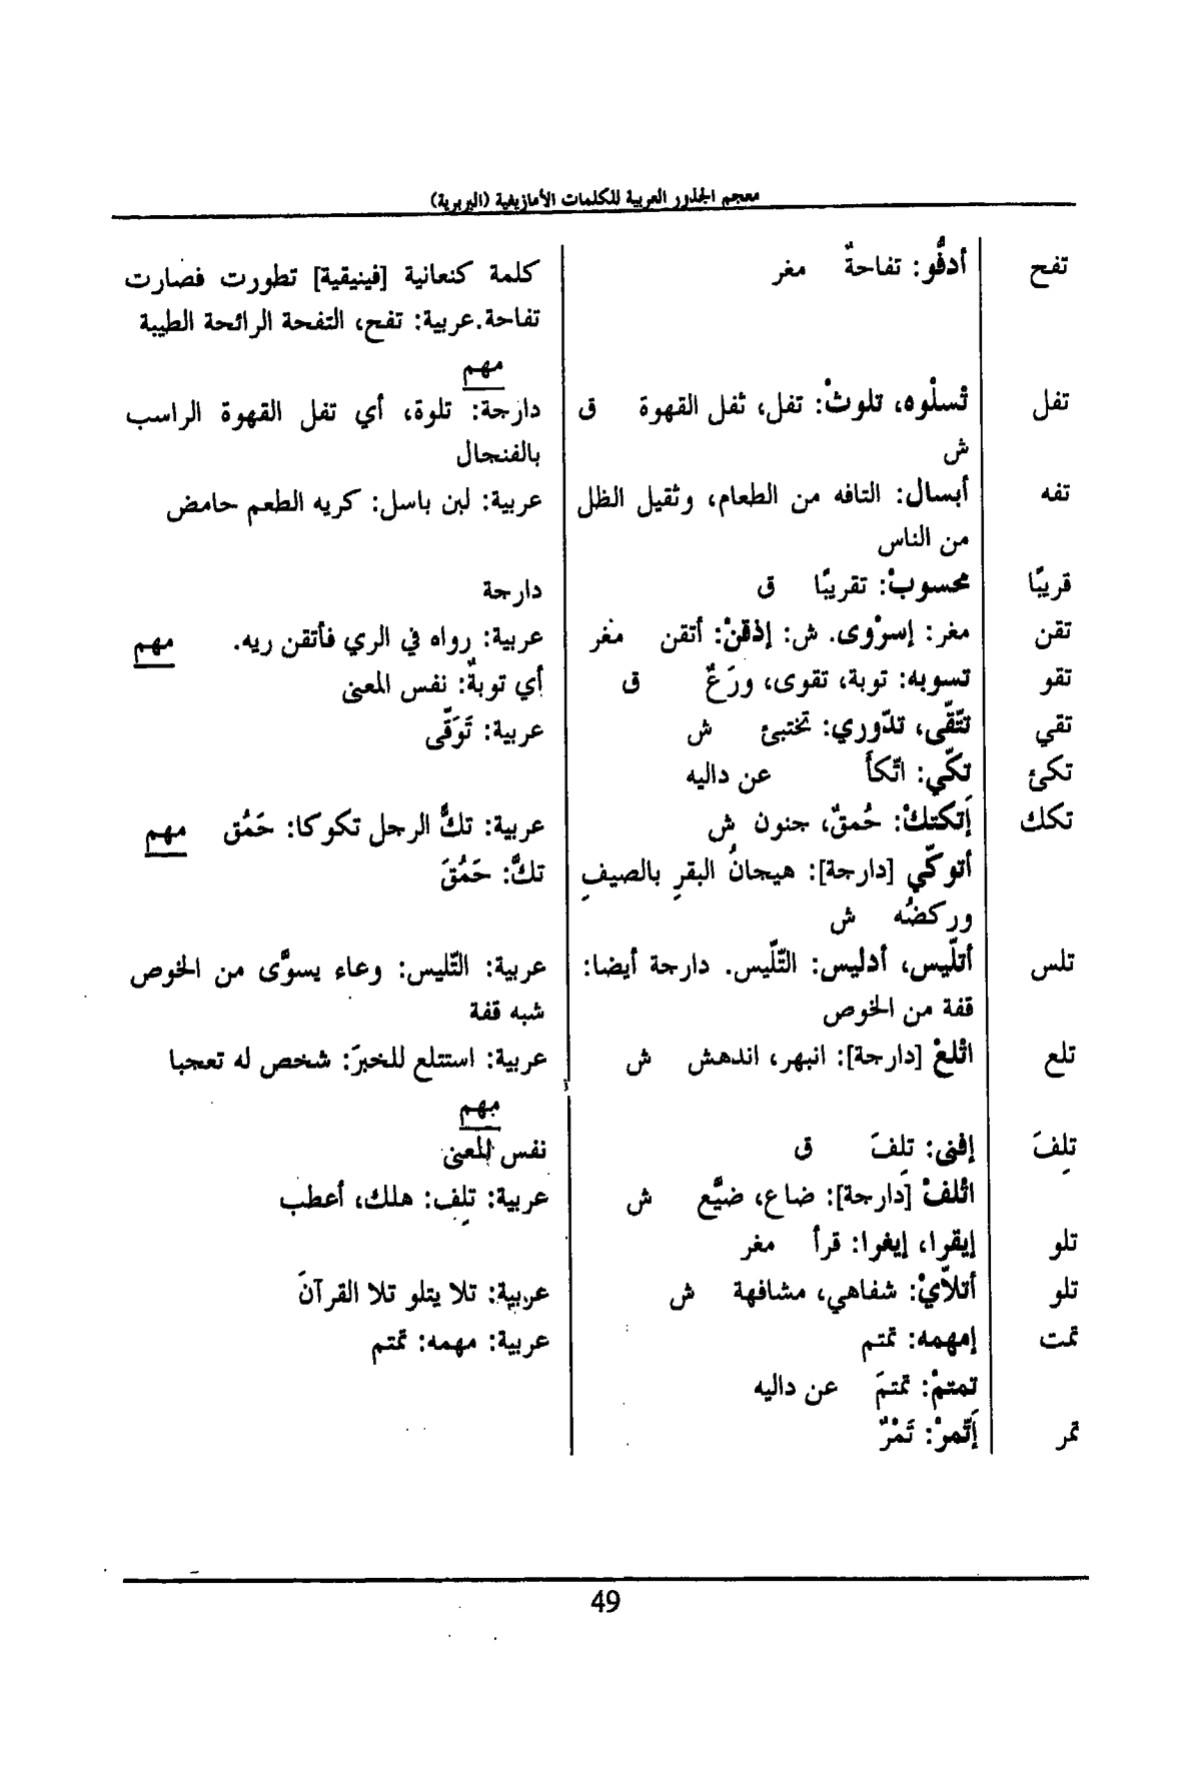 معجم الجذور العربية للكلمات الأمازيغية (البربرية)
تفح أدفُّو: تفاحةٌ مغر كلمة كنعانية [فينيقية] تطورت فصارت
تفاحة.عربية: تفح، التفحة الرائحة الطيبة
مهم
تفل تْسلْوه، تلوثْ: تفل، ثفل القهوة ق دارجة: تلوة، أي تفل القهوة الراسب
ش بالفنجال
تفه أبسال: التافه من الطعام، وثقيل الظل عربية: لبن باسل: كريه الطعم حامض
من الناس
قريبًا محسوبْ: تقريبًا ق دارجة
تقن مغر: إسرْوى. ش: إذقنْ: أتقن مغر عربية: رواه في الري فأتقن ريه. مهم
تقو تسوبه: توبة، تقوى، ورَعٌ ق أي توبةٌ: نفس المعنى
تقي تتّقّى، تدّوري: تختبئ ش عربية: تَوَقّى
تكئ تكّي: اتّكأَ عن داليه
تكك إَتكتكْ: حُمقٌ، جنون ش عربية: تكُّ الرجل تكوكا: حَمُق مهم
أتوكّي [دارجة]: هيجانُ البقرِ بالصيفِ تكَّ: حَمُقَ
وركضُه ش
تلس أتلّيس، أدليس: التّلّيس. دارجة أيضا: عربية: التّليس: وعاء يسوَّى من الخوص
قفة من الخوص شبه قفة
تلع اتْلعْ [دارجة]: انبهر، اندهش ش عربية: استتلع للخبرَ: شخص له تعجبا
مهم
تلِفَ إفنى: تلِفَ ق نفس المعنى
اتْلفْ [دارجة]: ضاع، ضيَّع ش عربية: تلِف: هلك، أعطب
تلو إيقرا، إيغرا: قرأ مغر
تلو أتلاّيْ: شفاهي، مشافهة ش عربية: تلا يتلو تلا القرآنَ
تمت إمهمه: تمتم عربية: مهمه: تمتم
تمتمْ: تمتمَ عن داليه
تمر إَتّمرْ: تَمْرٌ
49